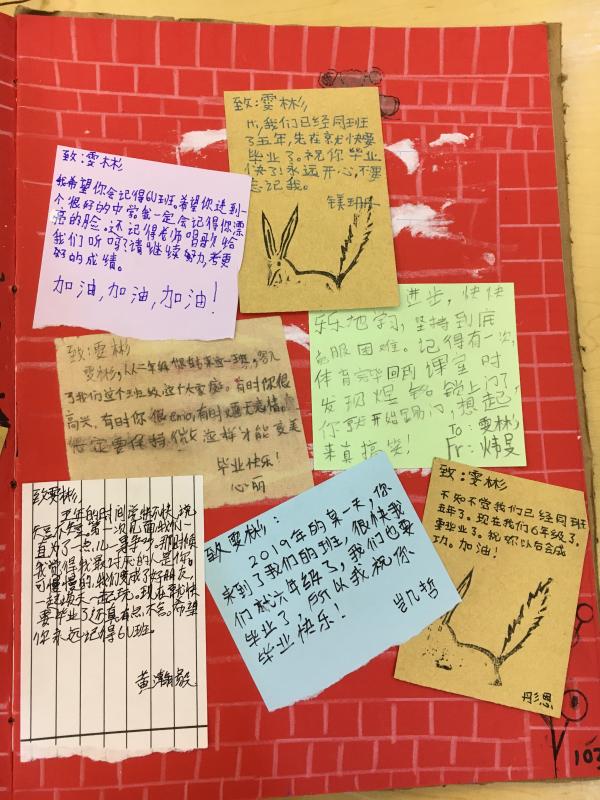 致:雯彬
Hi,我们已经同班
了五年,先在就快要
毕业了。祝你毕业
快了!永远开心,不要
忘记我。
镁珊
致:雯彬
我希望你会记得6U班。希望你进到一
个很好的中学。我一定会记得你漂
亮的脸。还记得老师唱歌给
我们听吗?请继续努力,考更
好的成绩。
加油,加油,加油!
进步,快快
乐乐地学习,坚持到底
克服困难。记得有一次,
体育完毕回到课室时
发现
锁上门了
你就开始
门,想起
来真搞笑!
To:雯彬
Fr:炜旻
致:雯彬
雯彬,从二年级你转来这一班,融入
了我们这个班级这个大家庭。有时你很
高兴,有时你很emo,有时
一定要保持微笑这样才能变美
毕业快乐!
心丽
致:雯彬
不知不觉我们已经同班
五年了。现在我们6年级了,
要毕业了。祝你以后会成
功。加油!
彤恩
致雯彬,
五年的时间
第一次见面我们
直为了一点儿
那时候
我觉得我最讨厌的人是你。
可慢慢的,我们变成了好朋友,
一起
一起玩。现在就快
要毕业了还真有点不舍。希望
你永远记得6U班。
黄瀚毅
致雯彬:
2019年的某一天,你
来到了我们的班,很快我
们就六年级了,我们也要
毕业了,所以我祝你
毕业快乐!
凯哲
103